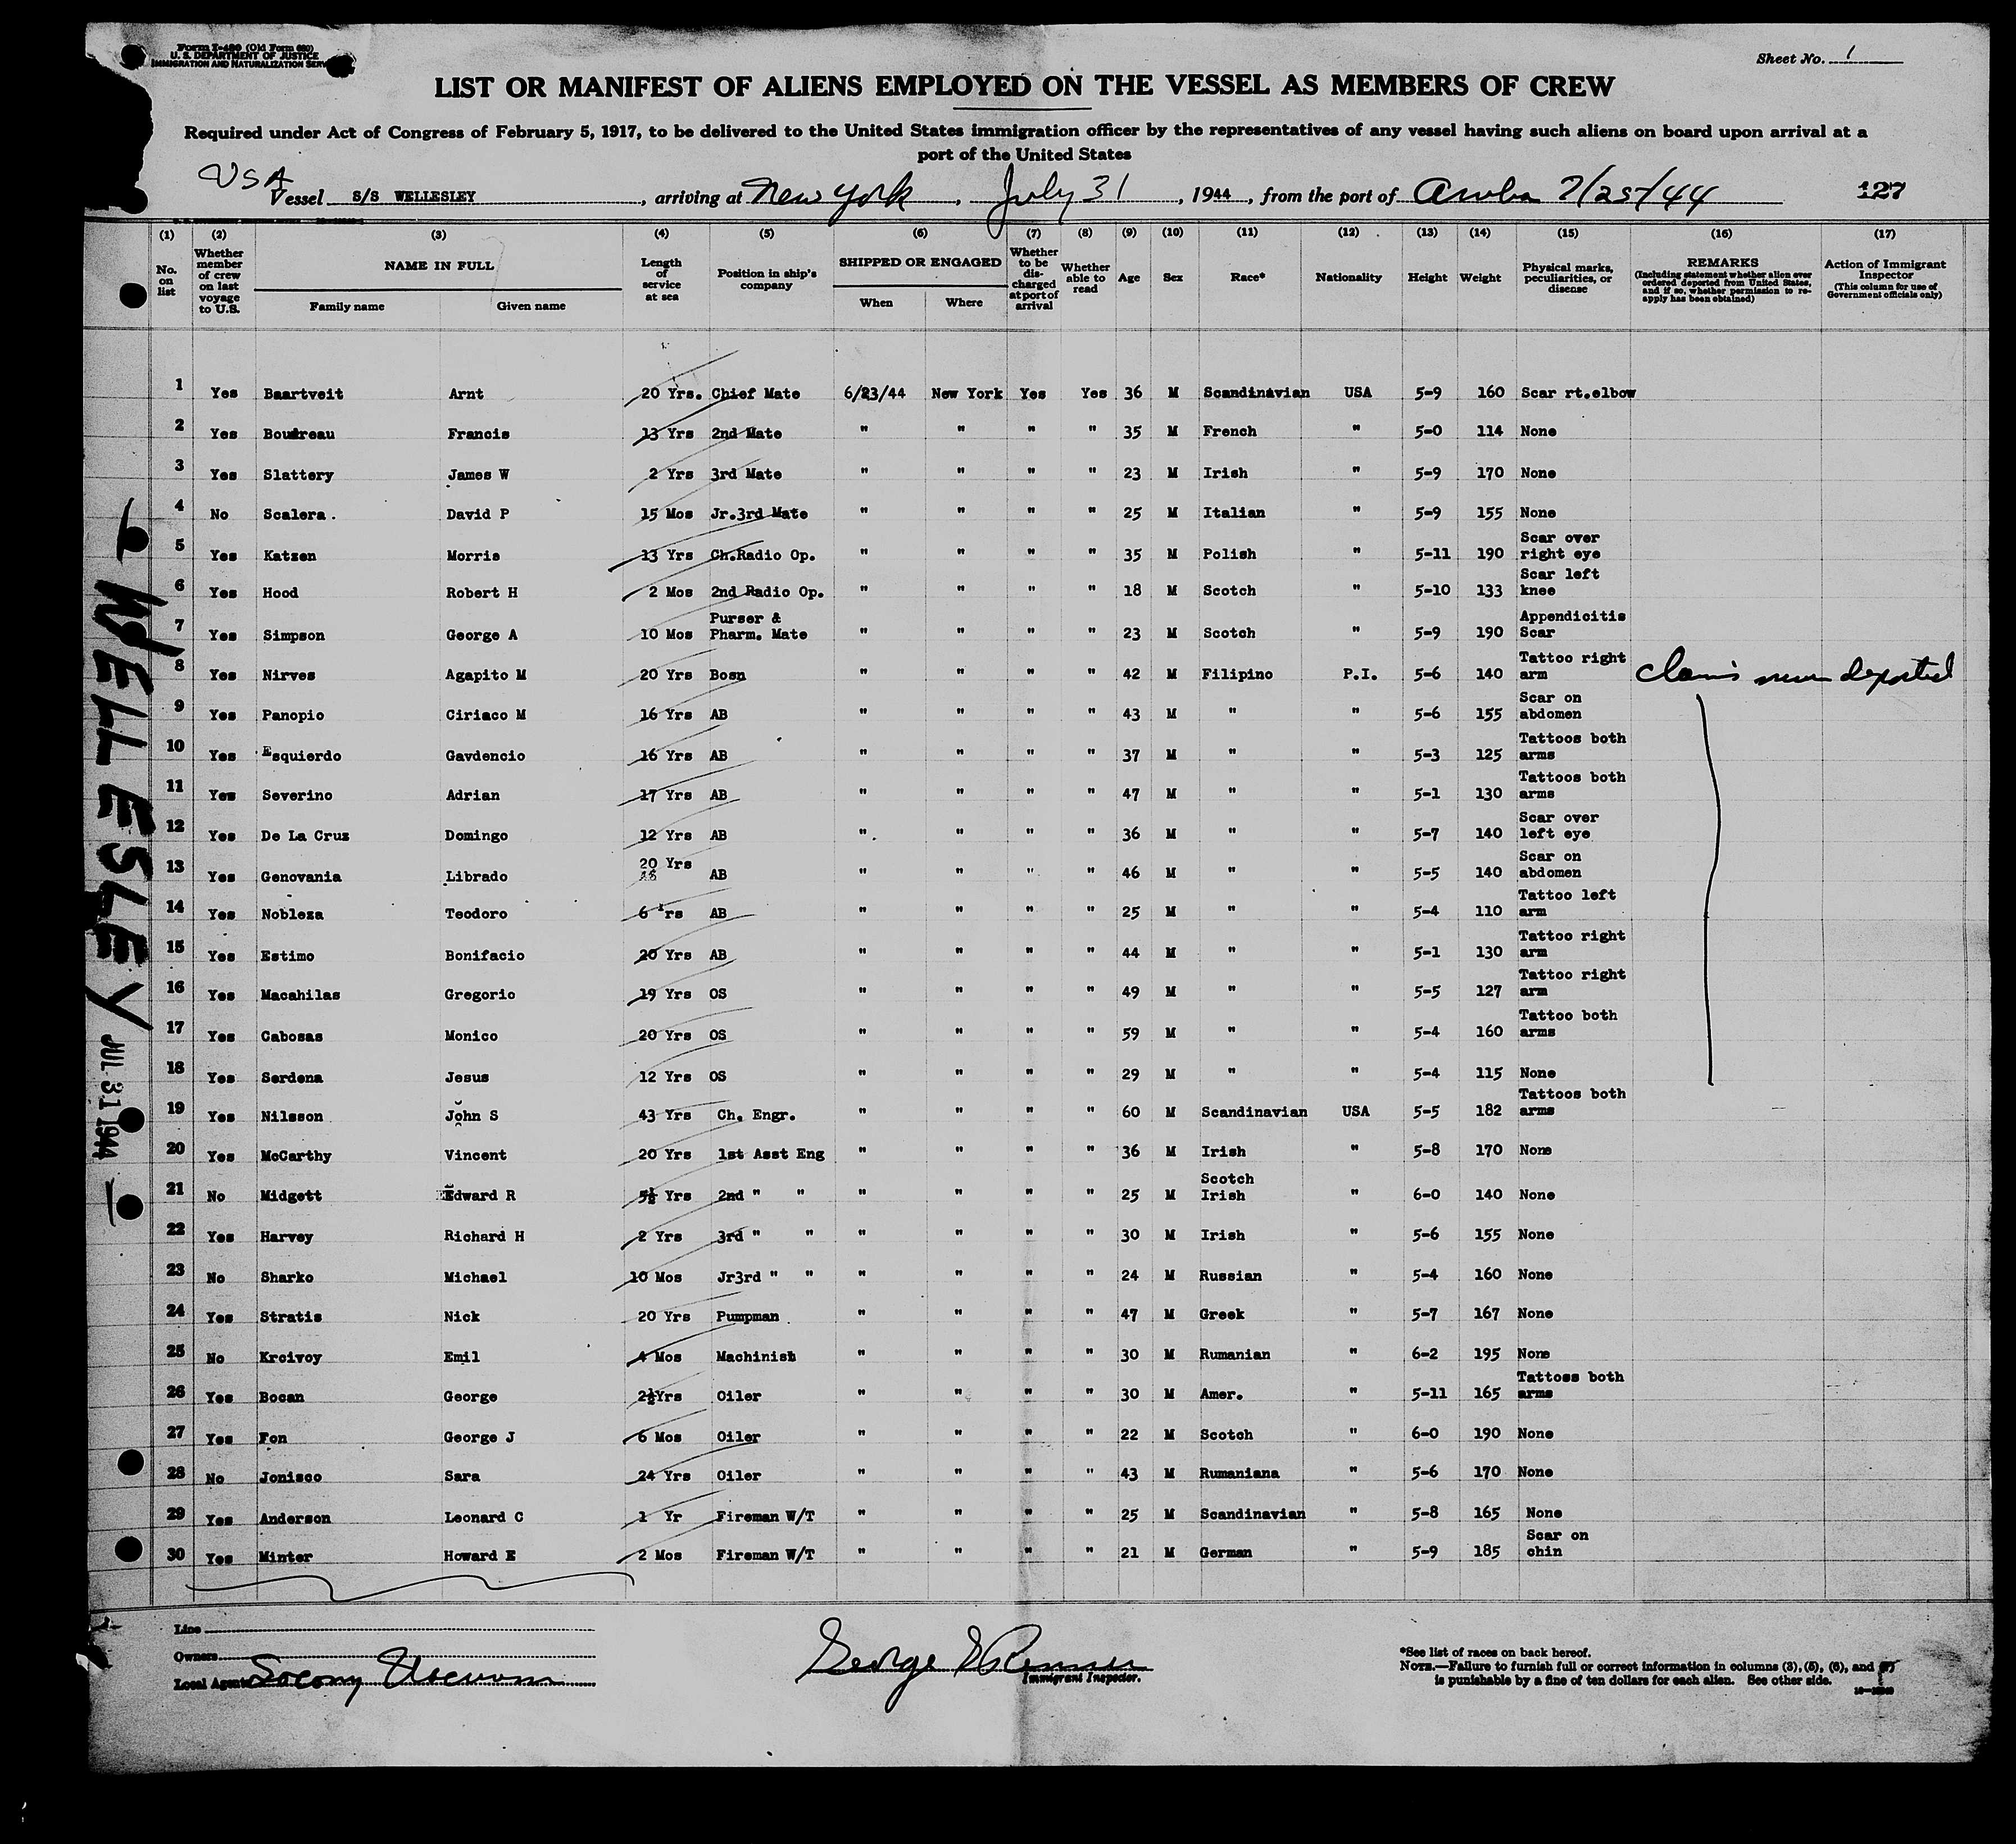 Form I-480 (Old Form 680)
U. S. DEPARTMENT OF JUSTICE
IMMIGRATION AND NATURALIZATION SERV
Sheet No. 1
LIST OR MANIFEST OF ALIENS EMPLOYED ON THE VESSEL AS MEMBERS OF CREW
Required under Act of Congress of February 5, 1917, to be delivered to the United States immigration officer by the representatives of any vessel having such aliens on board upon arrival at a
port of the United States
USA
Vessel S/S WELLESLEY, arriving at New York, July 31, 1944, from the port of Aruba 7/25/44 127
(1) (2) (3) (4) (5) (6) (7) (8) (9) (10) (11) (12) (13) (14) (15) (16) (17)
No. on list
Whether member of crew on last voyage to U.S.
NAME IN FULL
Family name Given name
Length of service at sea
Position in ship's company
SHIPPED OR ENGAGED
When Where
Whether to be discharged at port of arrival
Whether able to read
Age
Sex
Race*
Nationality
Height
Weight
Physical marks, peculiarities, or disease
REMARKS
(Including statement whether alien ever ordered deported from United States, and if so, whether permission to re-apply has been obtained)
Action of Immigrant Inspector
(This column for use of Government officials only)
1 Yes Baartveit Arnt 20 Yrs. Chief Mate 6/23/44 New York Yes Yes 36 M Scandinavian USA 5-9 160 Scar rt.elbow
2 Yes Boudreau Francis 13 Yrs 2nd Mate " " " " 35 M French " 5-0 114 None
3 Yes Slattery James W 2 Yrs 3rd Mate " " " " 23 M Irish " 5-9 170 None
4 No Scalera. David P 15 Mos Jr.3rd Mate " " " " 25 M Italian " 5-9 155 None
5 Yes Katzen Morris 13 Yrs Ch.Radio Op. " " " " 35 M Polish " 5-11 190 Scar over right eye
6 Yes Hood Robert H 2 Mos 2nd Radio Op. " " " " 18 M Scotch " 5-10 133 Scar left knee
7 Yes Simpson George A 10 Mos Purser & Pharm. Mate " " " " 23 M Scotch " 5-9 190 Appendicitis Scar
8 Yes Nirves Agapito M 20 Yrs Bosn " " " " 42 M Filipino P.I. 5-6 140 Tattoo right arm Claims never deported
9 Yes Panopio Ciriaco M 16 Yrs AB " " " " 43 M " " 5-6 155 Scar on abdomen
10 Yes Esquierdo Gavdencio 16 Yrs AB " " " " 37 M " " 5-3 125 Tattoos both arms
11 Yes Severino Adrian 17 Yrs AB " " " " 47 M " " 5-1 130 Tattoos both arms
12 Yes De La Cruz Domingo 12 Yrs AB " " " " 36 M " " 5-7 140 Scar over left eye
13 Yes Genovania Librado 20 Yrs AB " " " " 46 M " " 5-5 140 Scar on abdomen
14 Yes Nobleza Teodoro 6 Yrs AB " " " " 25 M " " 5-4 110 Tattoo left arm
15 Yes Estimo Bonifacio 20 Yrs AB " " " " 44 M " " 5-1 130 Tattoo right arm
16 Yes Macahilas Gregorio 19 Yrs OS " " " " 49 M " " 5-5 127 Tattoo right arm
17 Yes Cabosas Monico 20 Yrs OS " " " " 59 M " " 5-4 160 Tattoo both arms
18 Yes Serdena Jesus 12 Yrs OS " " " " 29 M " " 5-4 115 None
19 Yes Nilsson John S 43 Yrs Ch. Engr. " " " " 60 M Scandinavian USA 5-5 182 Tattoos both arms
20 Yes McCarthy Vincent 20 Yrs 1st Asst Eng " " " " 36 M Irish " 5-8 170 None
21 No Midgett Edward R 5½ Yrs 2nd " " " " " " 25 M Scotch Irish " 6-0 140 None
22 Yes Harvey Richard H 2 Yrs 3rd " " " " " " 30 M Irish " 5-6 155 None
23 No Sharko Michael 10 Mos Jr3rd " " " " " " 24 M Russian " 5-4 160 None
24 Yes Stratis Nick 20 Yrs Pumpman " " " " 47 M Greek " 5-7 167 None
25 No Krcivoy Emil 4 Mos Machinist " " " " 30 M Rumanian " 6-2 195 None
26 Yes Bocan George 2½Yrs Oiler " " " " 30 M Amer. " 5-11 165 Tattoss both arms
27 Yes Fon George J 6 Mos Oiler " " " " 22 M Scotch " 6-0 190 None
28 No Jonisco Sara 24 Yrs Oiler " " " " 43 M Rumaniana " 5-6 170 None
29 Yes Anderson Leonard C 1 Yr Fireman W/T " " " " 25 M Scandinavian " 5-8 165 None
30 Yes Minter Howard E 2 Mos Fireman W/T " " " " 21 M German " 5-9 185 Scar on chin
WELLESLEY
JUL 31 1944
Line
Owners
Local Agents Socony Vacuum
George
Immigrant Inspector.
*See list of races on back hereof.
NOTE.—Failure to furnish full or correct information in columns (3), (5), (6), and (7)
is punishable by a fine of ten dollars for each alien. See other side.